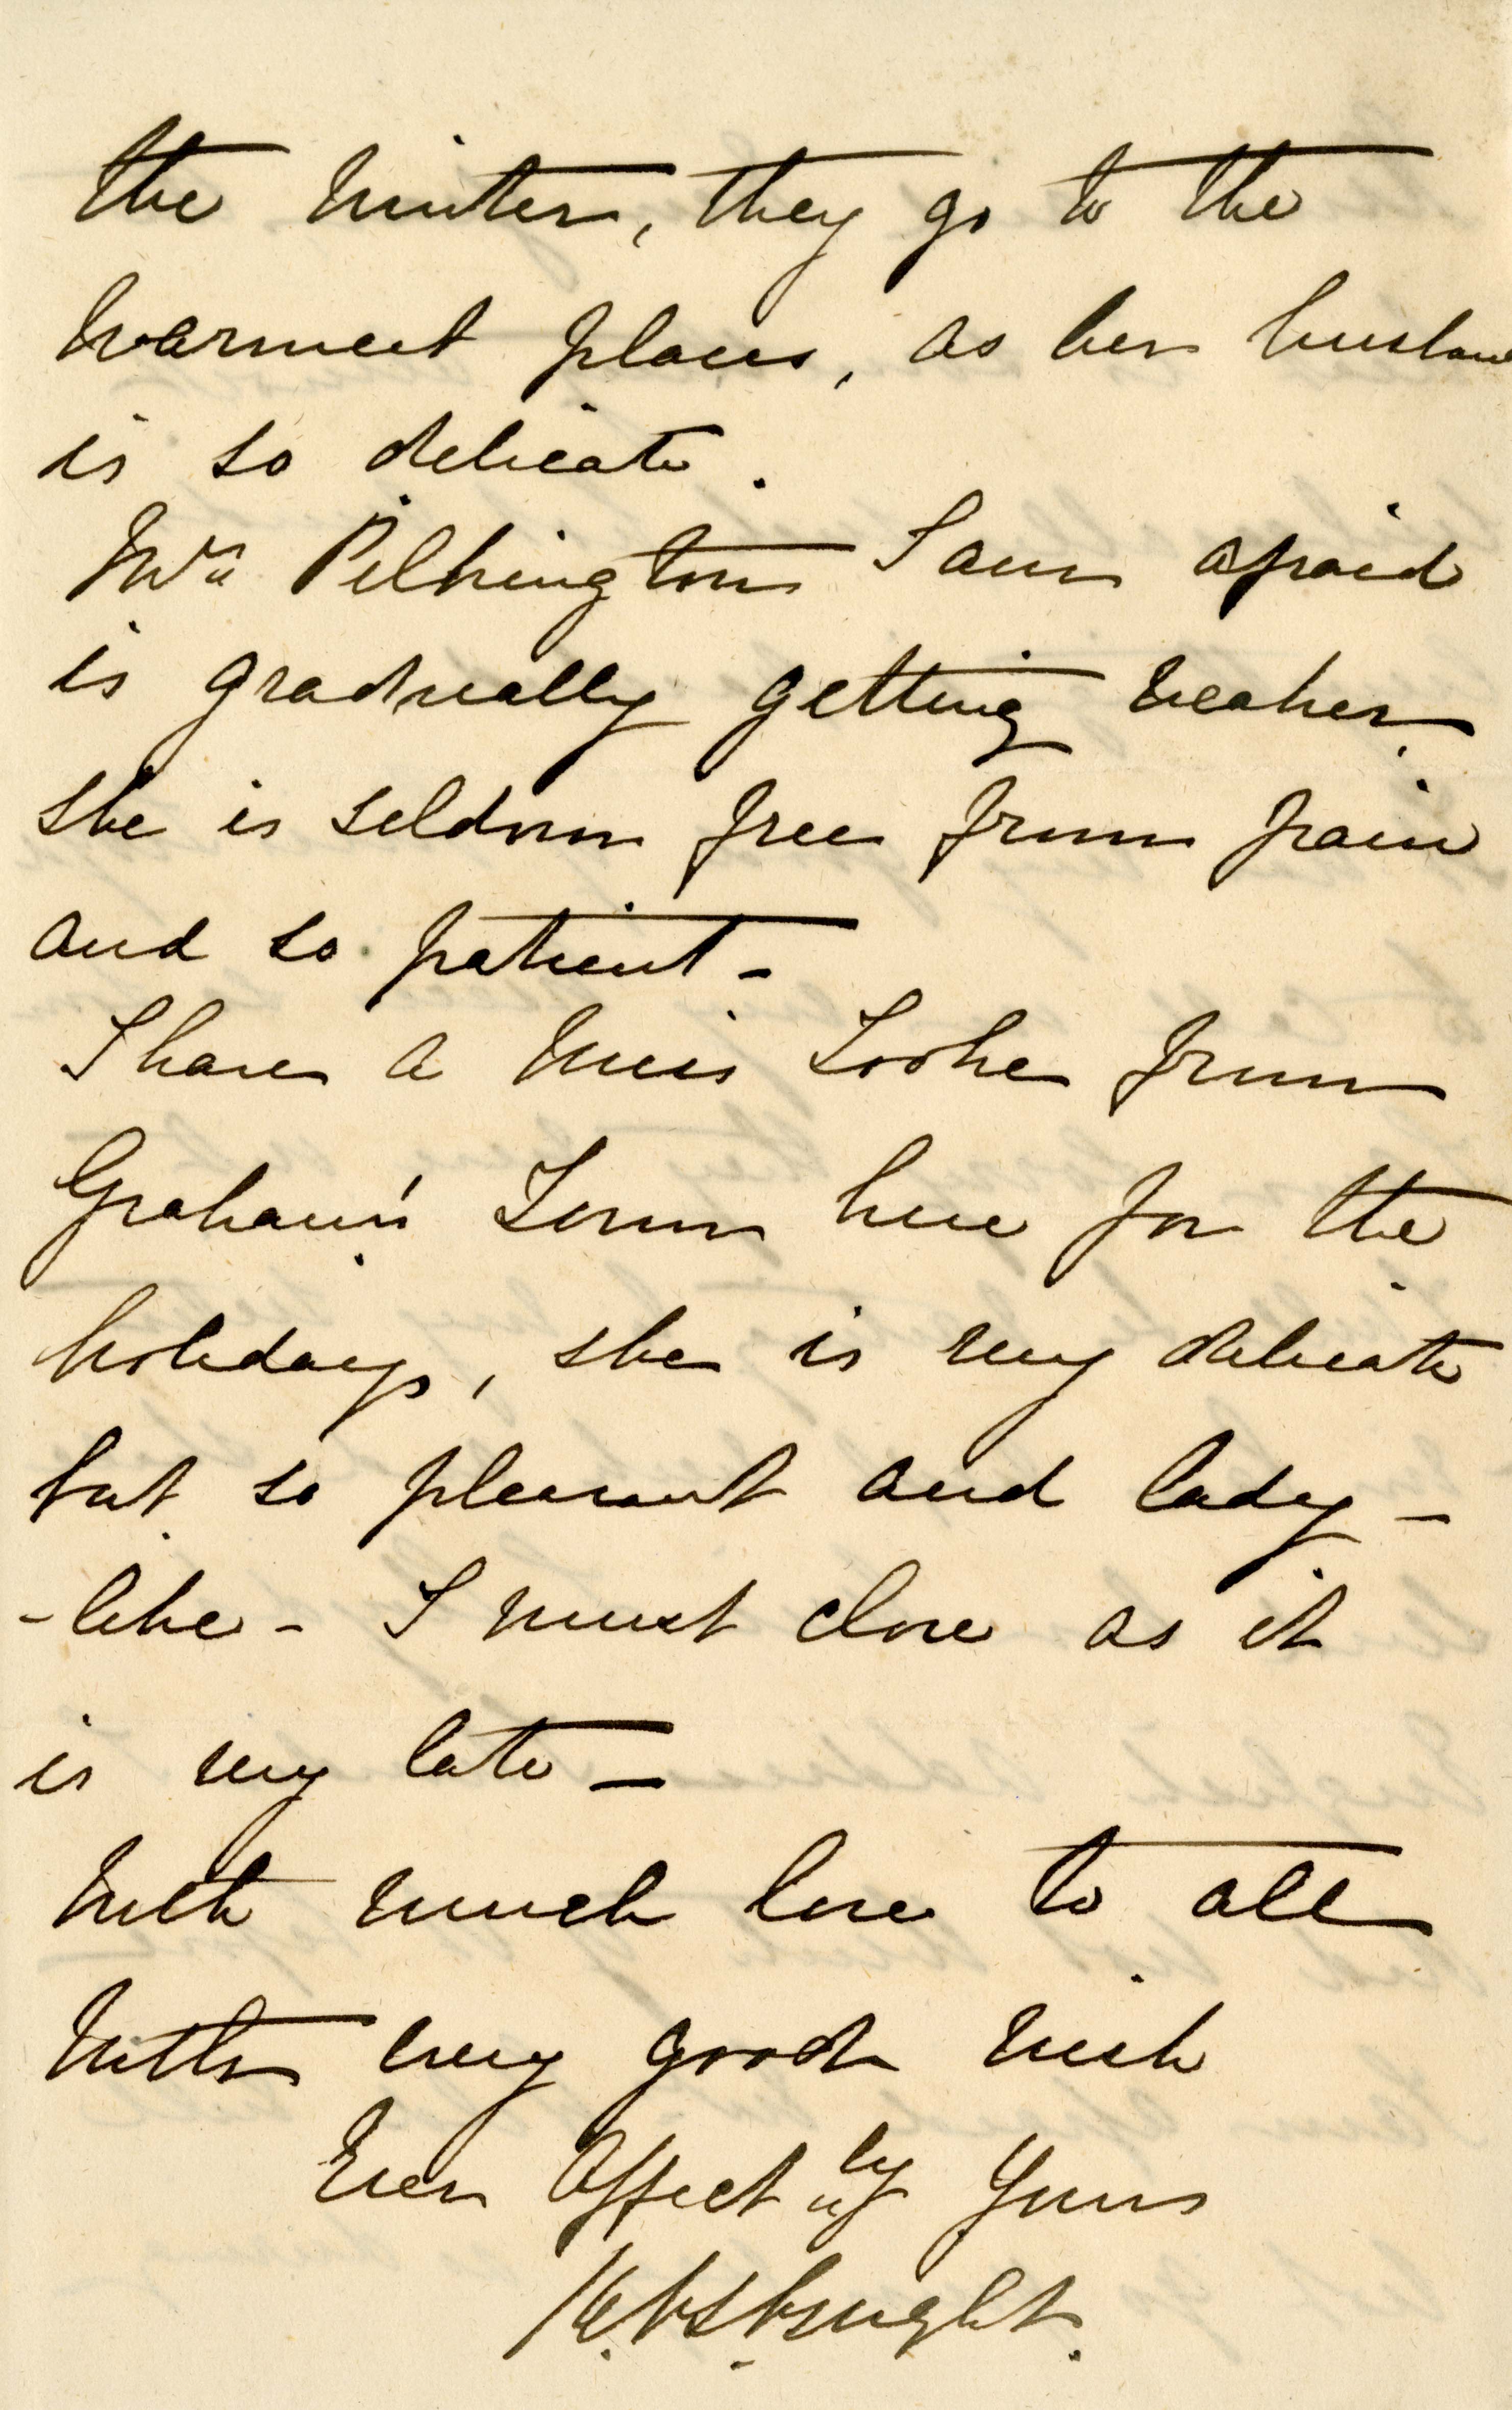 the winter, they go to the
warmest places, as her husband
is so delicate.
Mrs Pilkington I am afraid
is gradually getting weaker,
she is seldom free from pain
and so patient -
I have a Miss Cooke from
Graham's Town here for the
holidays, she is very delicate
but so pleasant and lady -
- like - I must close as it
is very late -
With much love to all
with every good wish
Ever Affectly Yours